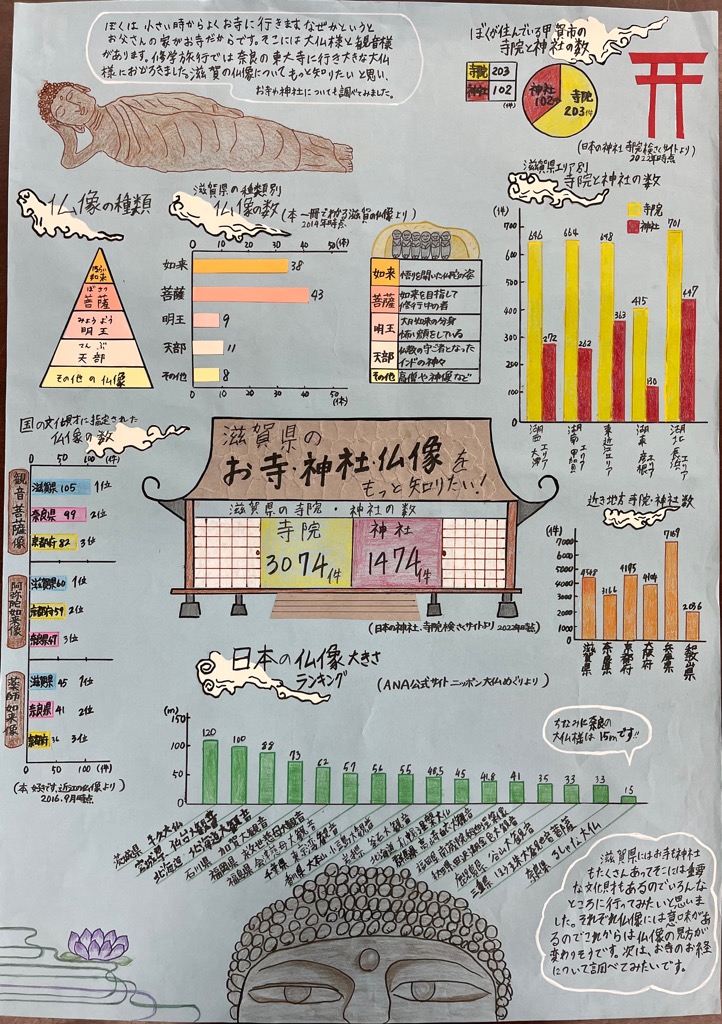 ぼくは小さい時からよくお寺に行きます。なぜかというと
お父さんの家がお寺だからです。そこには大仏様と観音様
があります。修学旅行では奈良の東大寺に行き大きな大仏
様におどろきました。滋賀の仏像についてもっと知りたいと思い、
お寺や神社についても調べてみました。
ぼくが住んでいる甲賀市の
寺院と神社の数
寺院 203
神社 102
(件)
神社
102件
寺院
203件
(日本の神社寺院検さくサイトより)
2022年時点
仏像の種類
如来
ぼさつ
菩薩
みょうおう
明王
てんぶ
天部
その他の仏像
滋賀県の種類別
仏像の数
(本 一冊でわかる滋賀の仏像より)
2019年時点
0 10 20 30 40 50(体)
如来 38
菩薩 43
明王 9
天部 11
その他 8
0 10 20 30 40 50
(体)
如来 悟りを開いた仏陀の姿
菩薩 如来を目指して
修行中の者
明王 大日如来の分身
怖い顔をしている
天部 仏教の守ご者となった
インドの神々
その他 高僧や神像など
滋賀県エリア別
寺院と神社の数
(件)
寺院
神社
700
600
500
400
300
200
100
0
646 272
664 262
648 363
415 130
701 447
湖西 大津 エリア
湖南 甲賀 エリア
東近江エリア
湖東 彦根 エリア
湖北 長浜 エリア
国の文化財に指定された
仏像の数
0 50 100 (件)
観音菩薩像
滋賀県 105 1位
奈良県 99 2位
京都府 82 3位
阿弥陀如来像
滋賀県 60 1位
京都府 59 2位
奈良県 47 3位
薬師如来像
滋賀県 45 1位
奈良県 41 2位
京都府 36 3位
0 50 100 (件)
(本 好きです、近江の仏像より)
2016.9月時点
滋賀県の
お寺・神社・仏像を
もっと知りたい!
滋賀県の寺院・神社の数
寺院
3074件
神社
1474件
(日本の神社、寺院検さくサイトより 2022年時点)
近き地方 寺院・神社数
(件)
7000
6000
5000
4000
3000
2000
1000
0
4548
3166
4795
4104
7169
2036
滋賀県
奈良県
京都府
大阪府
兵庫県
和歌山県
日本の仏像大きさ
ランキング
(ANA公式サイトニッポン大仏めぐりより)
(m)
150
100
50
0
120 100 88 73 62 57 56 55 48.5 45 41.8 41 35 33 33 15
ちなみに奈良の
大仏様は15mです!!
茨城県 牛久大仏
宮城県 仙台大観音
北海道 北海道大観音
石川県 加賀大観音
福岡県 救世慈母大観音
福島県 会津慈母大観音
千葉県 東京湾観音
奈良県 るしゃな大仏
滋賀県にはお寺や神社
もたくさんあってそこには重要
な文化財もあるのでいろんな
ところに行ってみたいと思いま
した。それぞれ仏像には意味があ
るのでこれからは仏像の見方が
変わりそうです。次は、お寺のお経
について調べてみたいです。